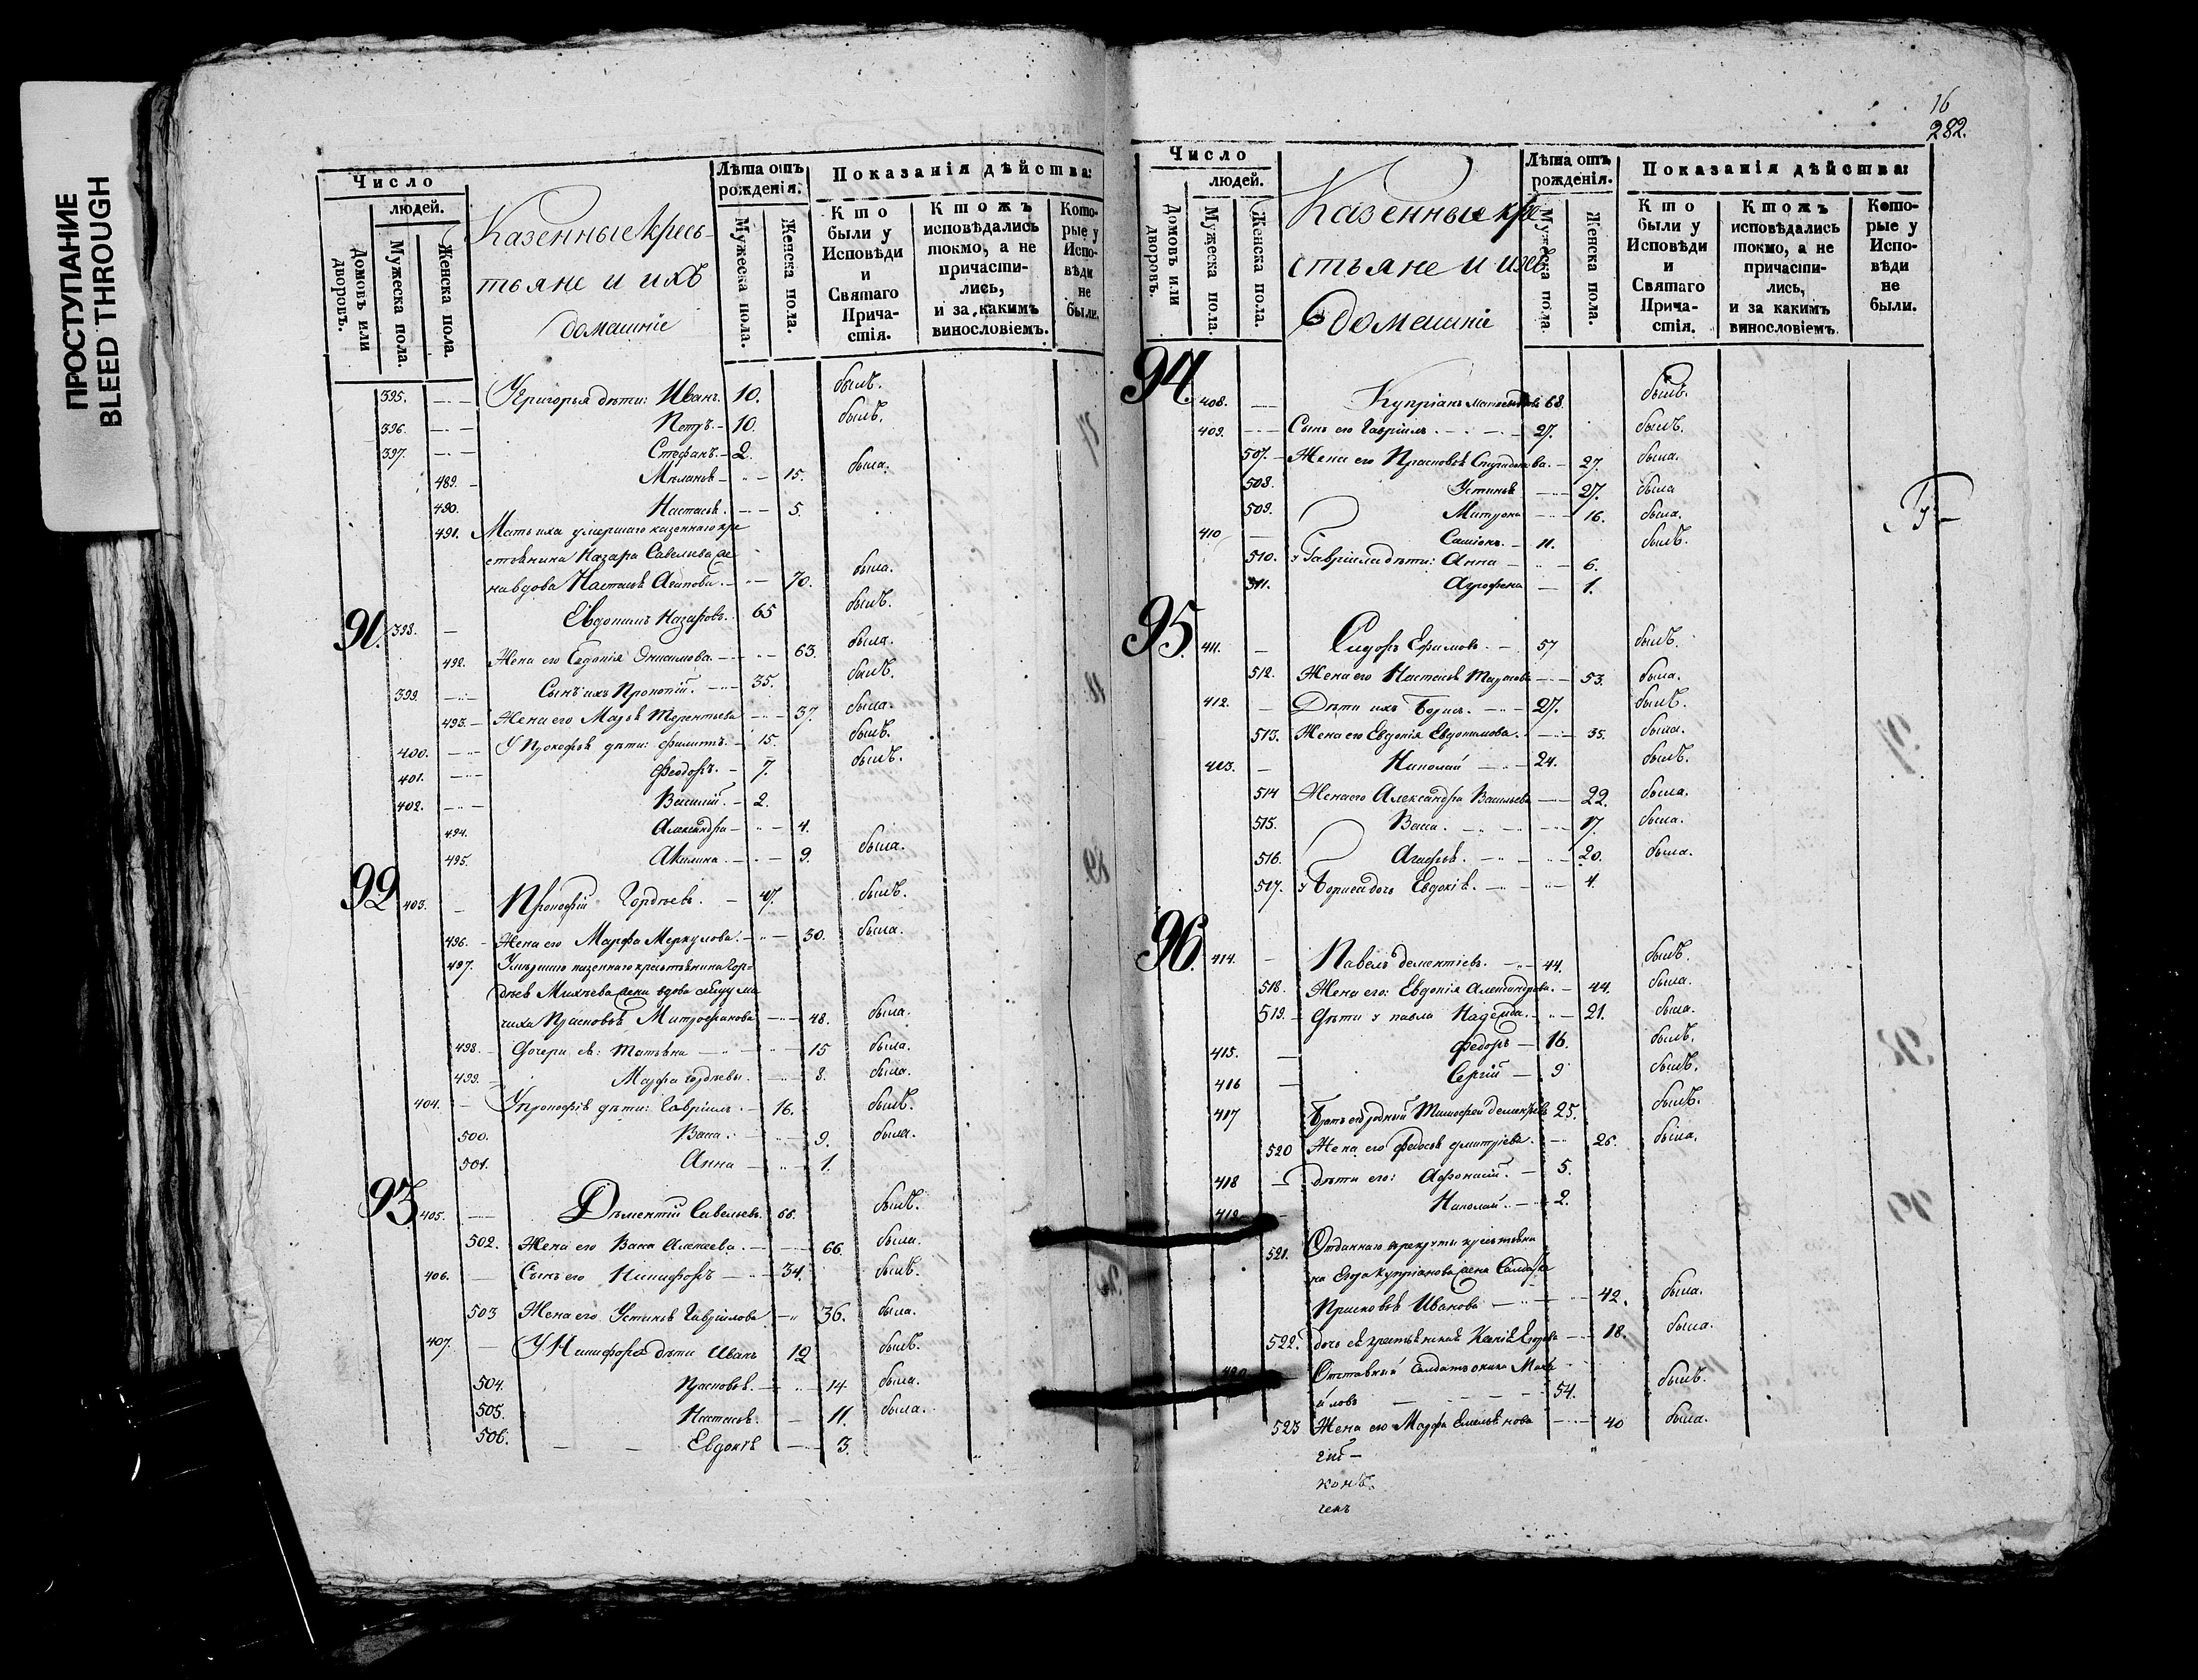 ПРОСТУПАНИЕ
BLEED THROUGH
Число
людей.
Домовъ или дворовъ.
Мужеска пола.
Женска пола.
Казенные кресь-
тьяне и ихъ
домашніе
Лѣта отъ рожденія.
Мужеска пола.
Женска пола.
Показанія дѣйства:
Кто были у Исповѣди и Святаго Причастія.
Ктожъ исповѣдались токмо, а не причастились, и за какимъ винословіемъ.
Которые у Исповѣди не были.
395. У Григорья дѣти: Иванъ 10. былъ.
396. Петръ 10. былъ.
397. Стефанъ 2.
489. Меланья 15. была.
490. Настасья 5.
491. Мать ихъ умершаго казеннаго кре
стьянина Назара Савельева же
на вдова Настасья Агапова 70. была.
91. 398. Евдокимъ Назаровъ 65 былъ.
492. Жена его Евдокія Онисимова 63. была.
399. Сынъ ихъ Прокопій 35. былъ.
493. Жена его Марья Терентьева 37. была.
400. У Прокофья дѣти: Филиппъ 15. былъ.
401. Феодоръ 7. былъ.
402. Василій 2.
494. Александра 4.
495. Акилина 9. была.
92 403. Прокофій Гордѣевъ 47. былъ.
496. Жена его Марфа Меркулова 50. была.
497. Умершаго казеннаго крестьянина Гор-
дѣя Михѣева жена вдова сему ма
чиха Прасковья Митрофанова 48. была.
498. Дочери ея: Татьяна 15 была.
499. Марфа Гордѣевы 8. была.
404. У Прокофія дѣти: Гавріилъ 16. былъ.
500. Васса 9. была.
501. Анна 1.
93 405. Дѣментій Савельевъ 66. былъ.
502. Жена его Васса Алексеева 66. была.
406. Сынъ его Никифоръ 34. былъ.
503 Жена его Устинья Гаврилова 36. была.
407. У Никифора дѣти Иванъ 12 былъ.
504. Прасковья 14 была.
505. Настасья 11. была.
506. Евдокія 3.
16
282.
Число
людей.
Домовъ или дворовъ.
Мужеска пола.
Женска пола.
Казенные кре
стьяне и ихъ
домашніе
Лѣта отъ рожденія.
Мужеска пола.
Женска пола.
Показанія дѣйства:
Кто были у Исповѣди и Святаго Причастія.
Ктожъ исповѣдались токмо, а не причастились, и за какимъ винословіемъ.
Которые у Исповѣди не были.
94. 408. Купріанъ 68. былъ.
409. Сынъ его Гавріилъ 27. былъ.
507. Жена его Прасковья Спиридонова 27. была.
508. Устинья 27. была
509. Матрона 16. была.
410 11. былъ.
510. у Гавріила дѣти: Анна 6.
511. Агрофена 1.
95. 411. Сидоръ Ефимовъ 57 былъ.
512. Жена его Настасья Тарасова 53. была.
412. Дѣти ихъ Борисъ 27. былъ.
513. Жена его Евдокія Евдокимова 35. была.
413. Николай 24. былъ.
514 Жена его Александра Васильева 22. была.
515. Васса 17. была.
516. Агафья 20. была.
517. у Бориса дочь Евдокія 4.
96. 414. Павелъ Дементіевъ 44. былъ.
518. Жена его: Евдокія Александрова 44. была.
519. Дѣти у Павла Надежда 21. была.
415. Федоръ 16. былъ.
416 Сергій 9 былъ.
417 Братъ его родный Тимофей Дементьевъ 25. былъ.
520 Жена его Федосья Дмитріева 26. была.
418 Дѣти его: Афонасій 5.
419 Николай 2.
521. Отданнаго в рекруты крестьяни
на Егора Купріанова жена Салдатка
Прасковья Иванова 42. была.
522. дочь ея крестьянская Ксенія Егорова 18. была.
420 Отставный Салдатъ Михай
ловъ 54. былъ.
523 Жена его Марфа Емельянова 40 была.